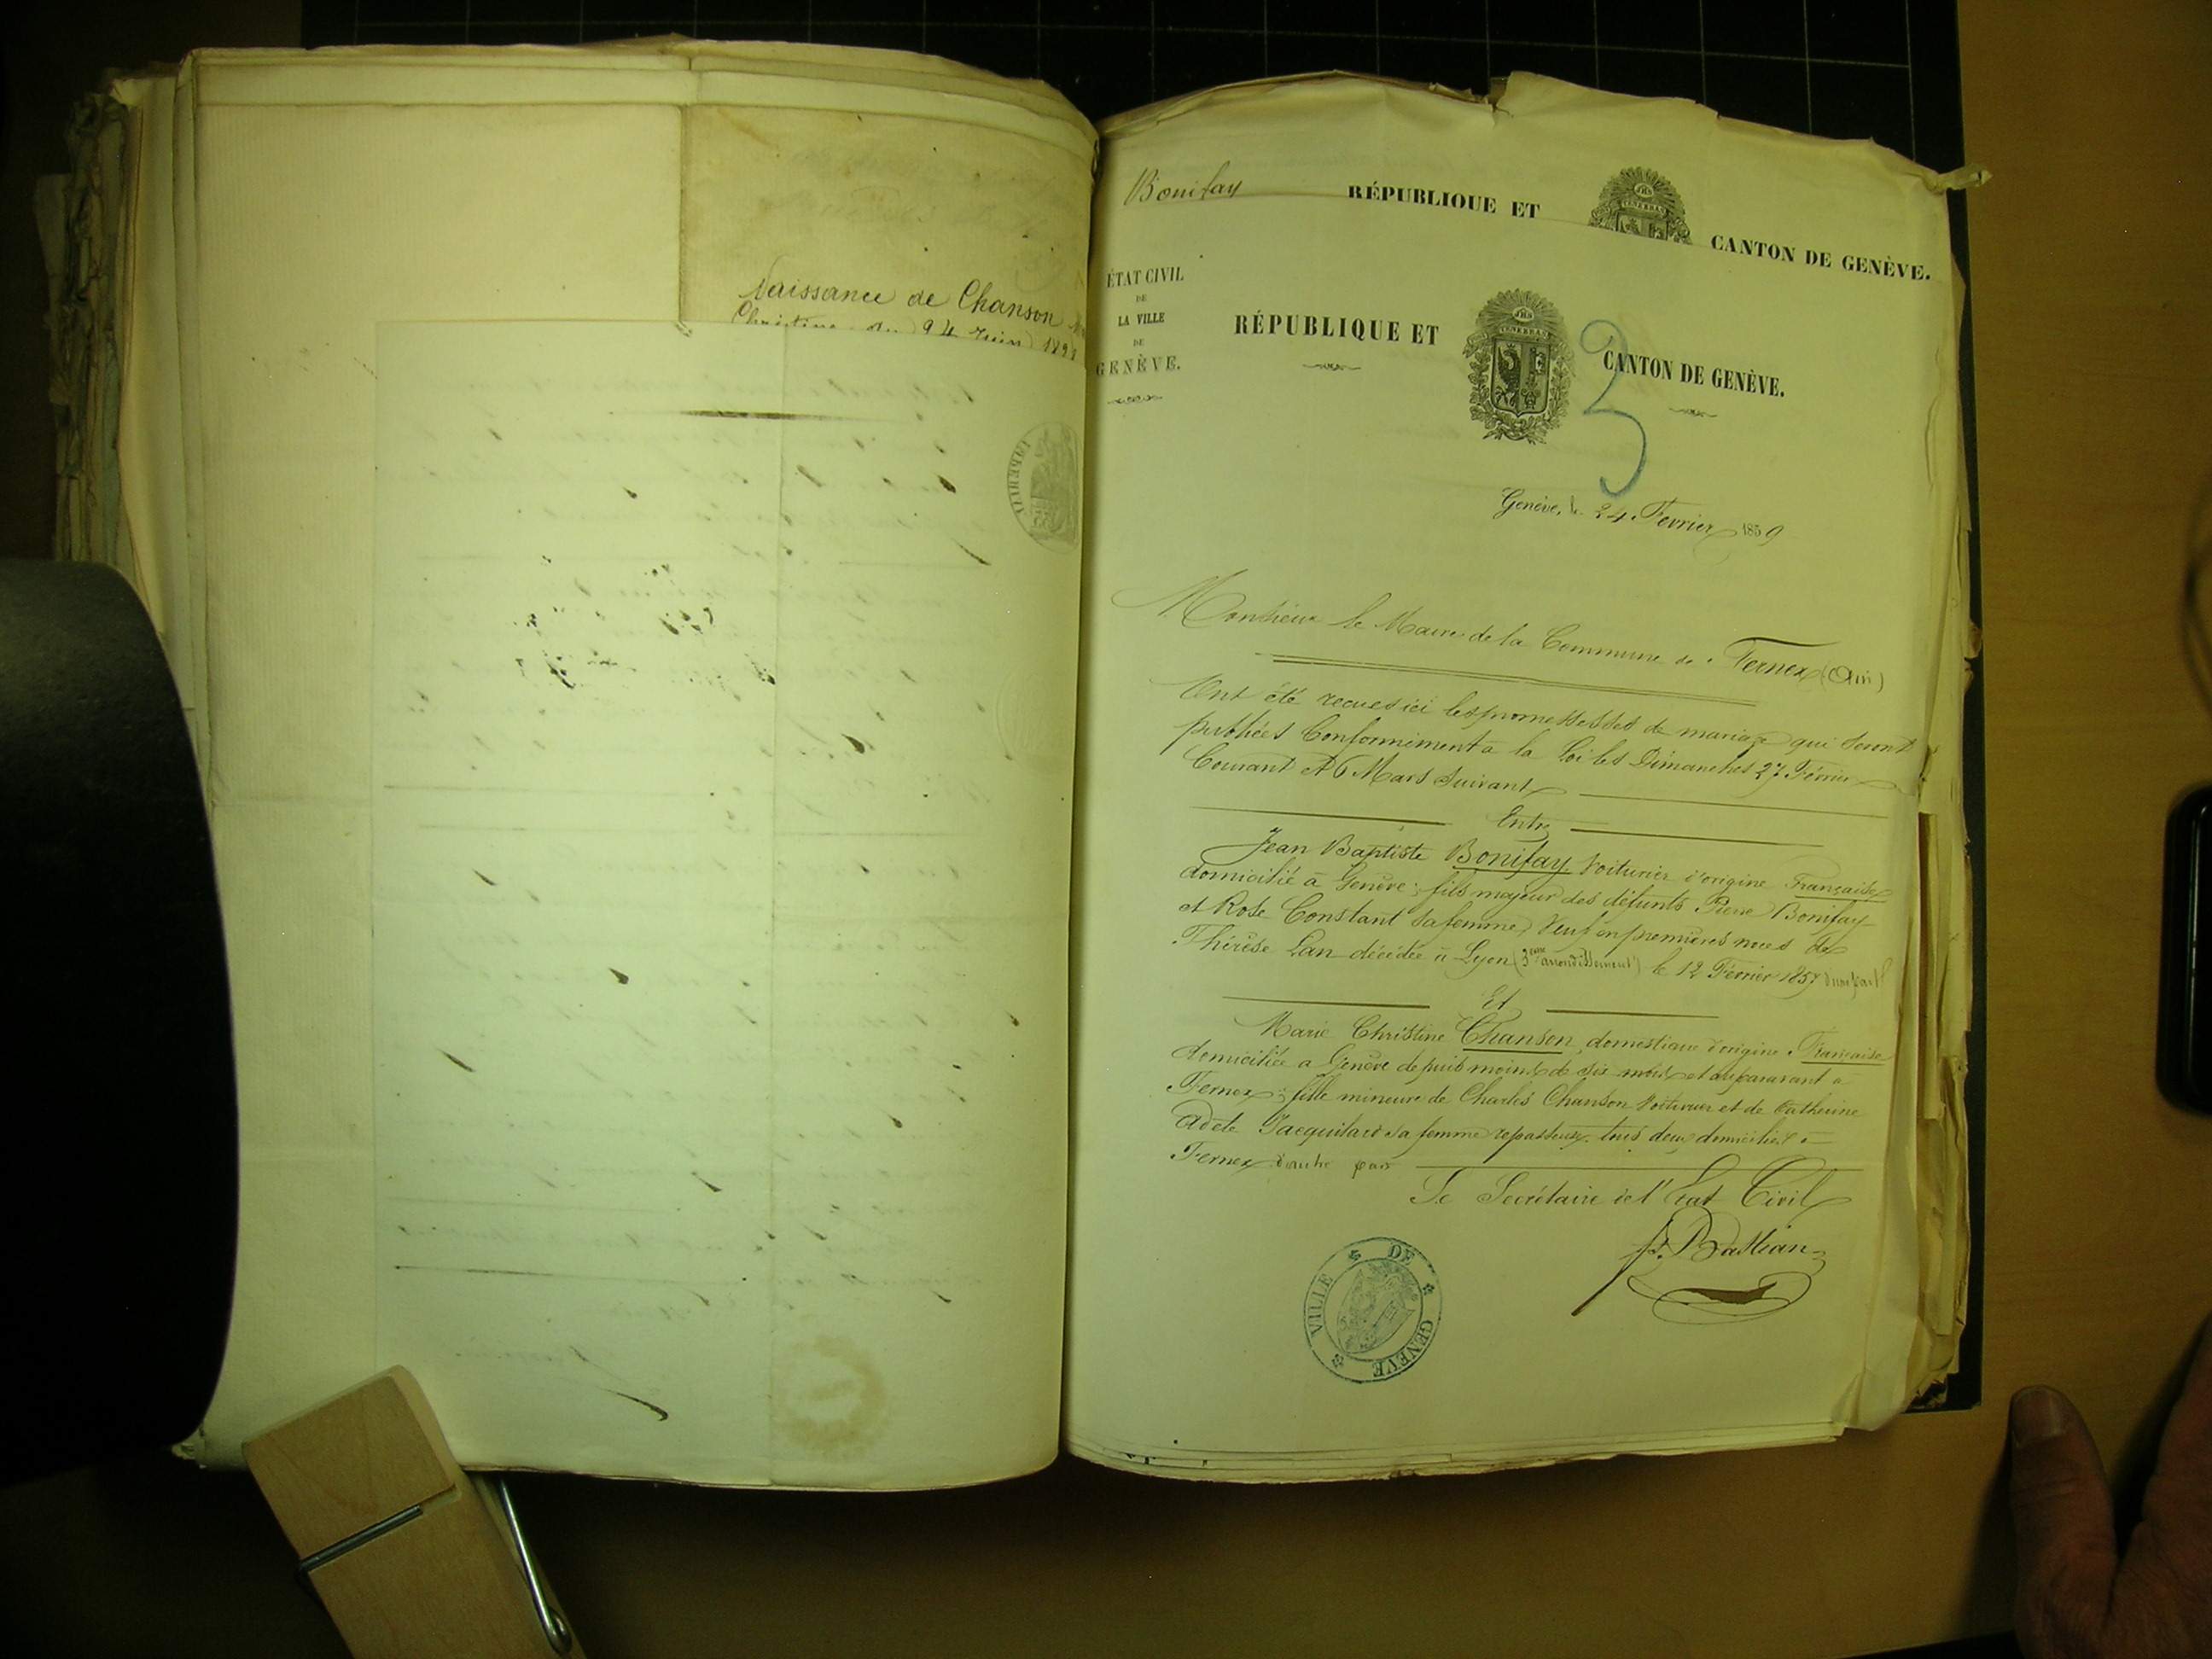 Naissance de Chanson
Christine du 24 Juin
Bonifay
RÉPUBLIQUE ET CANTON DE GENÈVE.
ÉTAT CIVIL
DE
LA VILLE
DE
GENÈVE.
RÉPUBLIQUE ET CANTON DE GENÈVE.
3
Genève, le 24 Fevrier 1859
Monsieur le Maire de la Commune de Fernex (Ain)
Ont été recues ici les promesses de mariage qui seront
publiées Conformément à la Loi les Dimanches 27 Février
Courant et 6 Mars Suivant
Entre
Jean Baptiste Bonifay, Voiturier d'origine Française
domicilié à Genève; fils majeur des défunts Pierre Bonifay
et Rose Constant sa femme, Veuf en premières noces de
Thérèse Lan décédée à Lyon (3eme arrondissement) le 12 Février 1857 d'une part
Et
Marie Christine Chanson, domestique d'origine Française
domiciliée a Genève depuis moins de six mois et auparavant a
Fernex; fille mineure de Charles Chanson Voiturier et de Catherine
Adele Jacquilard sa femme repasseuse, tous deux domiciliés à
Fernex d'autre part
Le Secrétaire de l'Etat Civil
VILLE DE GENEVE